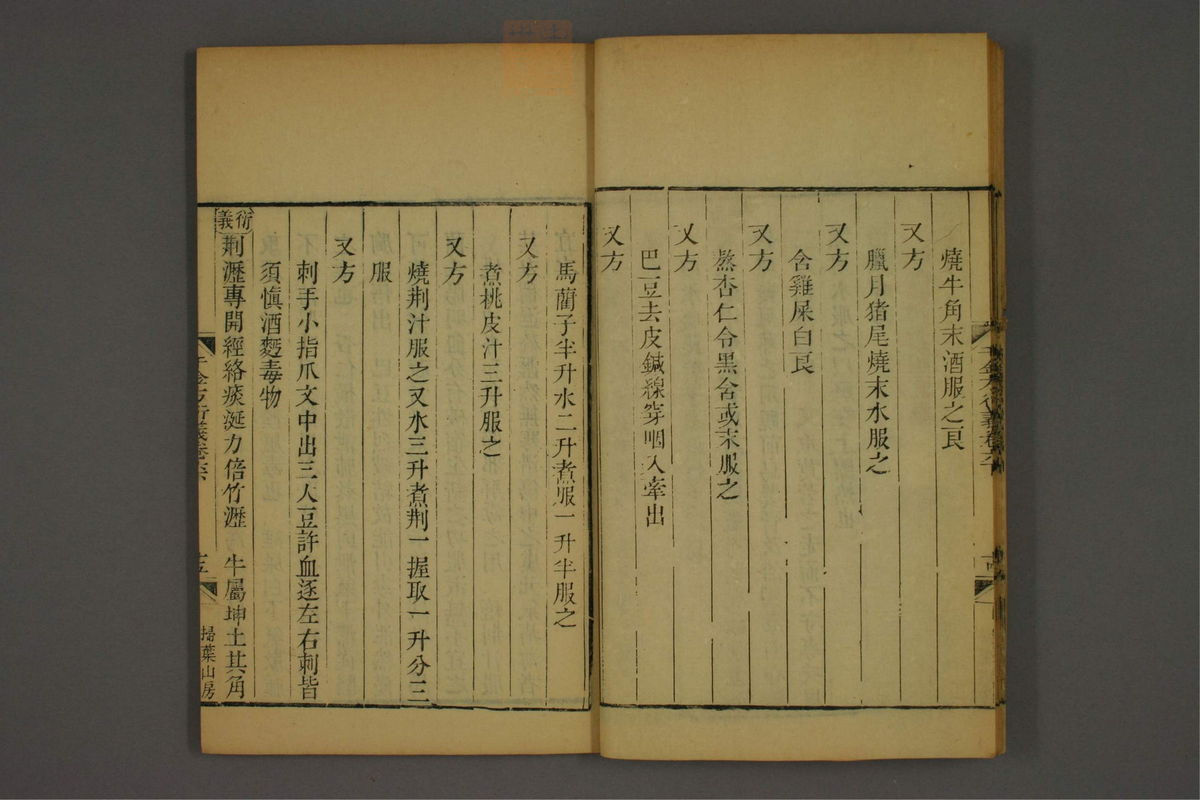 燒牛角末酒服之良
又方
臘月猪尾燒末水服之
又方
含雞屎白良
又方
熬杏仁令黑含或末服之
又方
巴豆去皮鍼線穿咽入牽出
又方
馬藺子半升水二升煮服一升半服之
又方
煮桃皮汁三升服之
又方
燒荆汁服之又水三升煮荆一握取一升分三
服
又方
刺手小指爪文中出三大豆許血逐左右刺皆
須愼酒麪毒物
衍義
荆瀝專開經絡痰涎力倍竹瀝　牛屬坤土其角
千金方衍義卷六
十五
掃葉山房